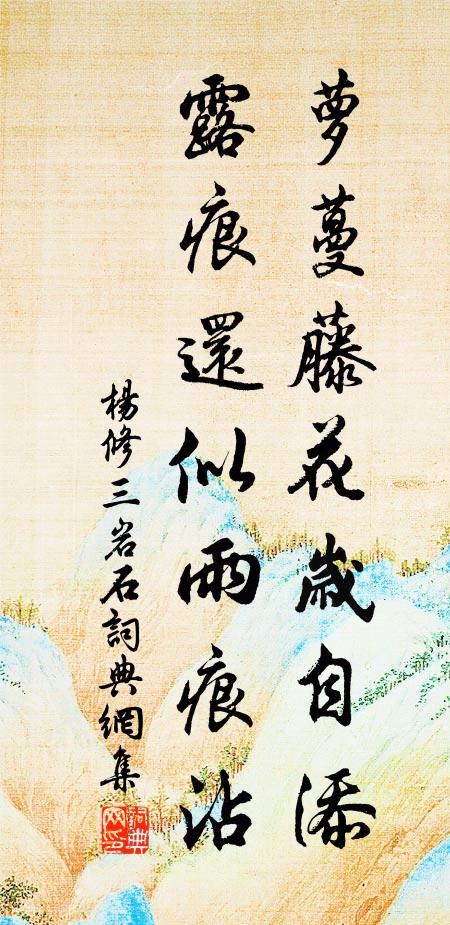 萝蔓藤花歲自添
露痕還似雨痕沾
楊修三岩石詞典網集
詞典网印